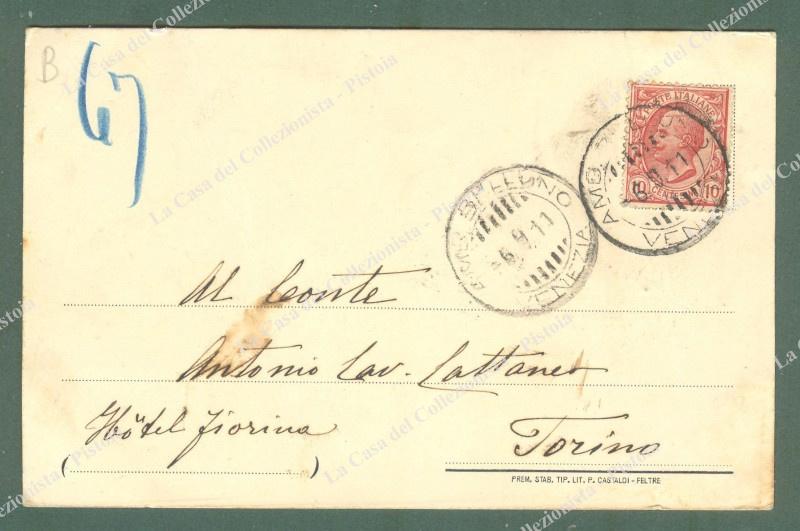 B
67
POSTE ITALIANE
CENT. 10
AMB.
6.9.11
VENEZIA
AMB. BELLUNO
6.9.11
VENEZIA
Al Conte
Antonio Cav. Cattaneo
Hôtel Fiorina
Torino
( )
PREM. STAB. TIP. LIT. P. CASTALDI - FELTRE
La Casa del Collezionista - Pistoia